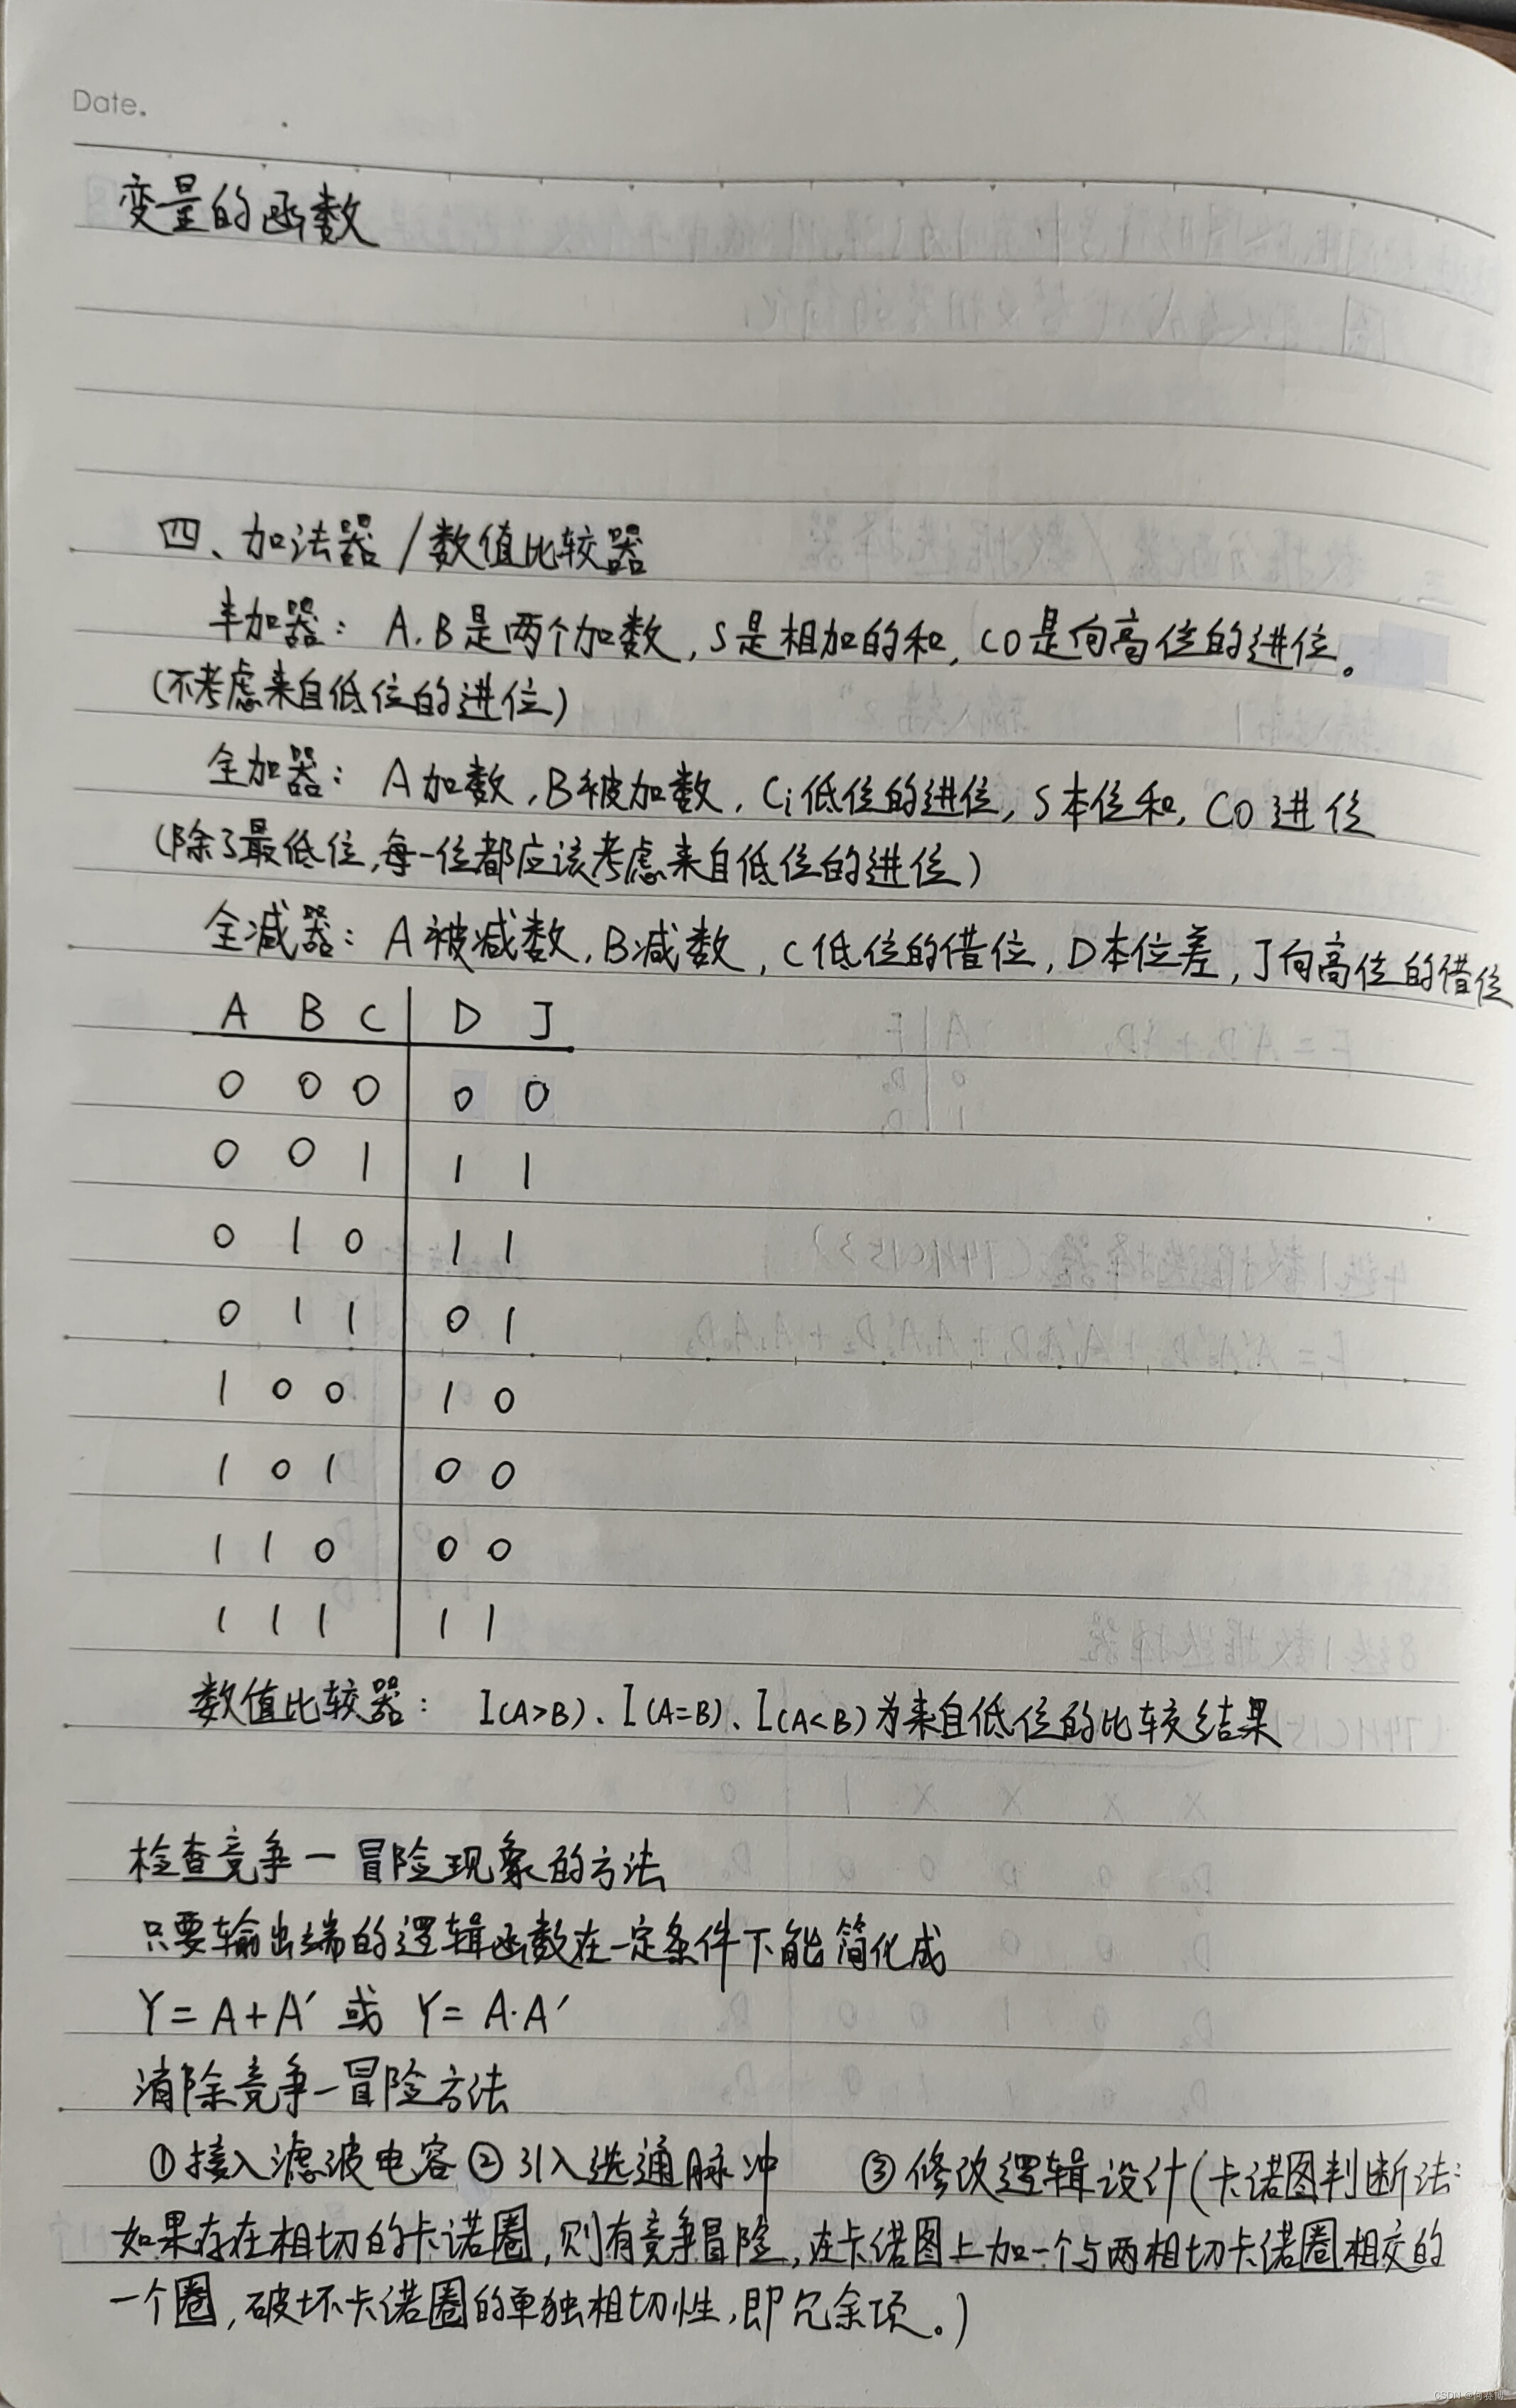 Date.
变量的函数
四、加法器/数值比较器
半加器：A.B是两个加数,S是相加的和,CO是向高位的进位。
(不考虑来自低位的进位)
全加器：A加数,B被加数,Ci低位的进位,S本位和,CO进位
(除了最低位,每一位都应该考虑来自低位的进位)
全减器：A被减数,B减数,C低位的借位,D本位差,J向高位的借位
A B C D J
0 0 0 0 0
0 0 1 1 1
0 1 0 1 1
0 1 1 0 1
1 0 0 1 0
1 0 1 0 0
1 1 0 0 0
1 1 1 1 1
数值比较器：I(A>B)、I(A=B)、I(A<B)为来自低位的比较结果
检查竞争一冒险现象的方法
只要输出端的逻辑函数在一定条件下能简化成
Y=A+A′ 或 Y=A·A′
消除竞争一冒险方法
①接入滤波电容②引入选通脉冲 ③修改逻辑设计(卡诺图判断法:
如果存在相切的卡诺圈,则有竞争冒险,在卡诺图上加一个与两相切卡诺圈相交的
一个圈,破坏卡诺圈的单独相切性,即冗余项。)